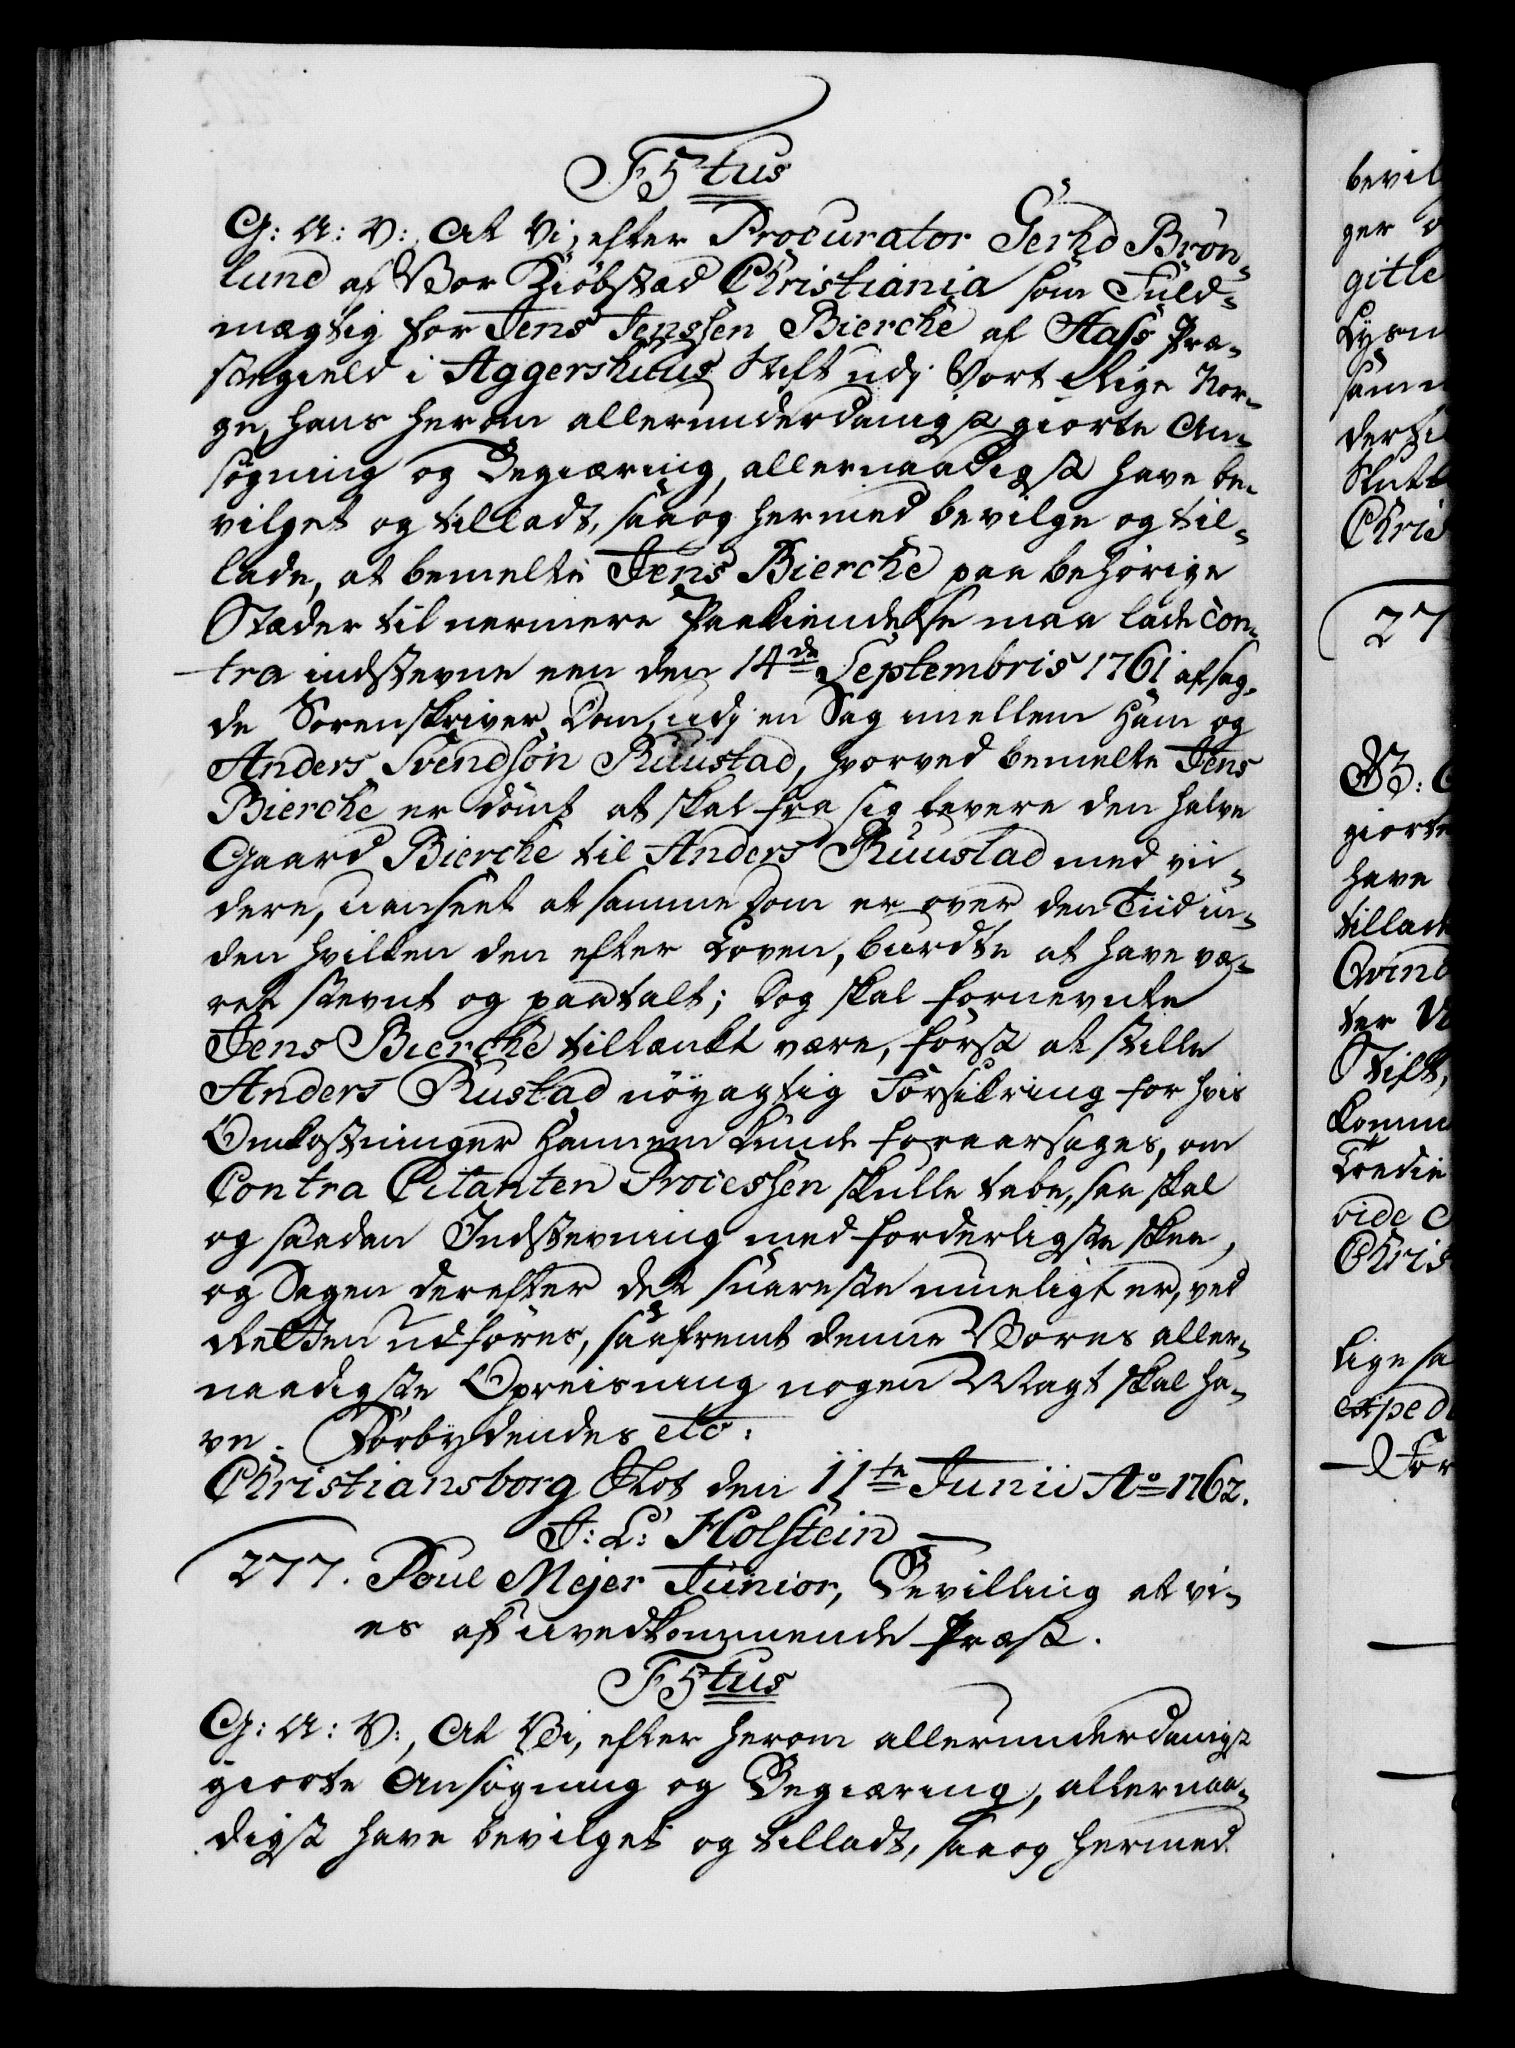 F5tus
G: A: V:, At Vi, efter Procurator Gerhd Brøn-
lund af Vor Kiøbstad Christiania som Fuld-
mægtig for Jens Jenssen Bierche af Næss Præ-
stegield i Aggershuus Stift udj Vort Rige Nor-
ge, hans herom allerunderdanigst giorte An-
søgning og Begiæring, allernaadigst have be-
vilget og tilladt, saa og hermed bevilge og til-
lade, at bemelte Jens Bierche paa behørige
Stæder til nermere Paakiendelse maa lade Con-
tra indstevne een den 14de Septembris 1761 afsag-
de Sorenskriver Dom, udj en Sag imellem Ham og
Anders Svendsøn Ruustad, hvorved bemelte Jens
Bierche er dømt at skal fra sig levere den halve
Gaard Bierche til Anders Ruustad med vii-
dere, uanseet at samme Dom er over den Tiid in-
den hvilken den efter Loven, burdte at have væ-
ret stevnt og paatalt; Dog skal fornevnte
Jens Bierche tiltænkt være, først at stille
Anders Rustad nøyagtig Forsikring for hvis
Omkostninger Hannem kunde foraarsages, om
Contra Citanten Processen skulle tabe, saa skal
og saadan Indstevning med forderligste skee,
og Sagen derefter det snareste mueligt er, ved
Retten udføres, saafremt denne Vores aller-
naadigste Opreisning nogen Magt skal ha-
ve. Forbydendes etc.
Christiansborg Slot den 11te Junii Ao 1762.
J: L: Holstein
277. Poul Mejer Junior, Bevilling at vi-
es af uvedkommende Præst.
F5tus
G: A: V:, At Vi, efter herom allerunderdanigst
giorte Ansøgning og Begiæring, allernaa-
digst have bevilget og tilladt, saa og hermed
bevil
ger o
gitle
Lysn
samm
derti
Slutt
Chris
27
giorte
have
tillad
Qvind
ter
Stift,
komm
Tredie
vide
Chris
lige sa
exped